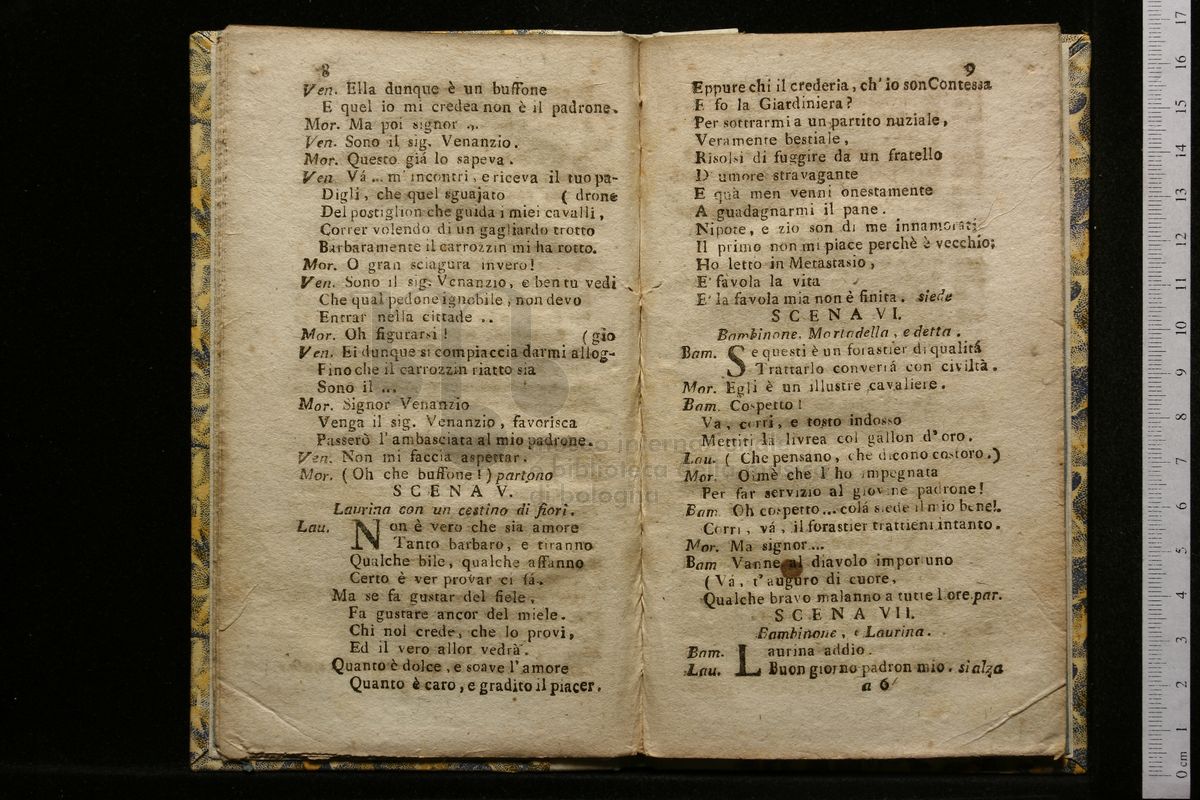 8
Ven. Ella dunque è un buffone
E quel io mi credea non è il padrone.
Mor. Ma poi signor ...
Ven. Sono il sig. Venanzio.
Mor. Questo giá lo sapeva.
Ven. Vá ... m' incontri, e riceva il tuo pa-
Digli, che quel sguajato ( drone
Del postiglion che guida i miei cavalli,
Correr volendo di un gagliardo trotto
Barbaramente il carrozzin mi ha rotto.
Mor. O gran sciagura invero!
Ven. Sono il sig. Venanzio, e ben tu vedi
Che qual pedone ignobile, non devo
Entrar nella cittade ..
Mor. Oh figurarsi! (gio
Ven. Ei dunque si compiaccia darmi allog-
Fino che il carrozzin riatto sia
Sono il ...
Mor. Signor Venanzio
Venga il sig. Venanzio, favorisca
Passerò l'ambasciata al mio padrone.
Ven. Non mi faccia aspettar.
Mor. (Oh che buffone!) partono
SCENA V.
Laurina con un cestino di fiori.
Lau. Non è vero che sia amore
Tanto barbaro, e tiranno
Qualche bile, qualche affanno
Certo è ver provar ci fá.
Ma se fa gustar del fiele,
Fa gustare ancor del miele.
Chi nol crede, che lo provi,
Ed il vero allor vedrà.
Quanto è dolce, e soave l'amore
Quanto è caro, e gradito il piacer.
9
Eppure chi il crederia, ch' io son Contessa
E fo la Giardiniera?
Per sottrarmi a un partito nuziale,
Veramente bestiale,
Risolsi di fuggire da un fratello
D' umore stravagante
E quà men venni onestamente
A guadagnarmi il pane.
Nipote, e zio son di me innamorati
Il primo non mi piace perchè è vecchio;
Ho letto in Metastasio,
E' favola la vita
E' la favola mia non è finita. siede
SCENA VI.
Bambinone, Mortadella, e detta.
Bam. Se questi è un forastier di qualitá
Trattarlo converrá con civiltà.
Mor. Egli è un illustre cavaliere.
Bam. Cospetto!
Va, corri, e tosto indosso
Mettiti la livrea col gallon d'oro.
Lau. ( Che pensano, che dicono costoro.)
Mor. Oimè che l' ho impegnata
Per far servizio al giovine padrone!
Bam. Oh cospetto ... colá siede il mio bene!.
Corri, vá, il forastier trattieni intanto.
Mor. Ma signor...
Bam Vanne al diavolo importuno
(Vá, t'auguro di cuore,
Qualche bravo malanno a tutte l ore. par.
SCENA VII.
Bambinone, e Laurina.
Bam. Laurina addio.
Lau. Buon giorno padron mio. si alza
a 6
museo internazionale
biblioteca della musica
di bologna
17
16
15
14
13
12
11
10
9
8
7
6
5
4
3
2
1
0 cm